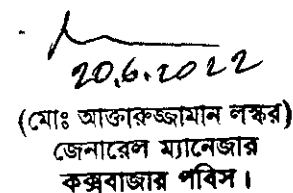 20.6.2022
(মোঃ আক্তারুজ্জামান লস্কর)
জেনারেল ম্যানেজার
কক্সবাজার পবিস।